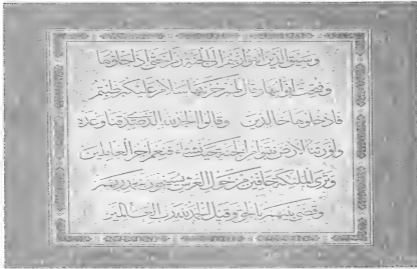 وسيق الذين اتقوا ربهم الى الجنة زمرا حتى اذا جاؤها
وفتحت ابوابها وقال لهم خزنتها سلام عليكم طبتم
فادخلوها خالدين وقالوا الحمد لله الذي صدقنا وعده
واورثنا الارض نتبوأ من الجنة حيث نشاء فنعم اجر العاملين
وترى الملائكة حافين من حول العرش يسبحون بحمد ربهم
وقضي بينهم بالحق وقيل الحمد لله رب العالمين